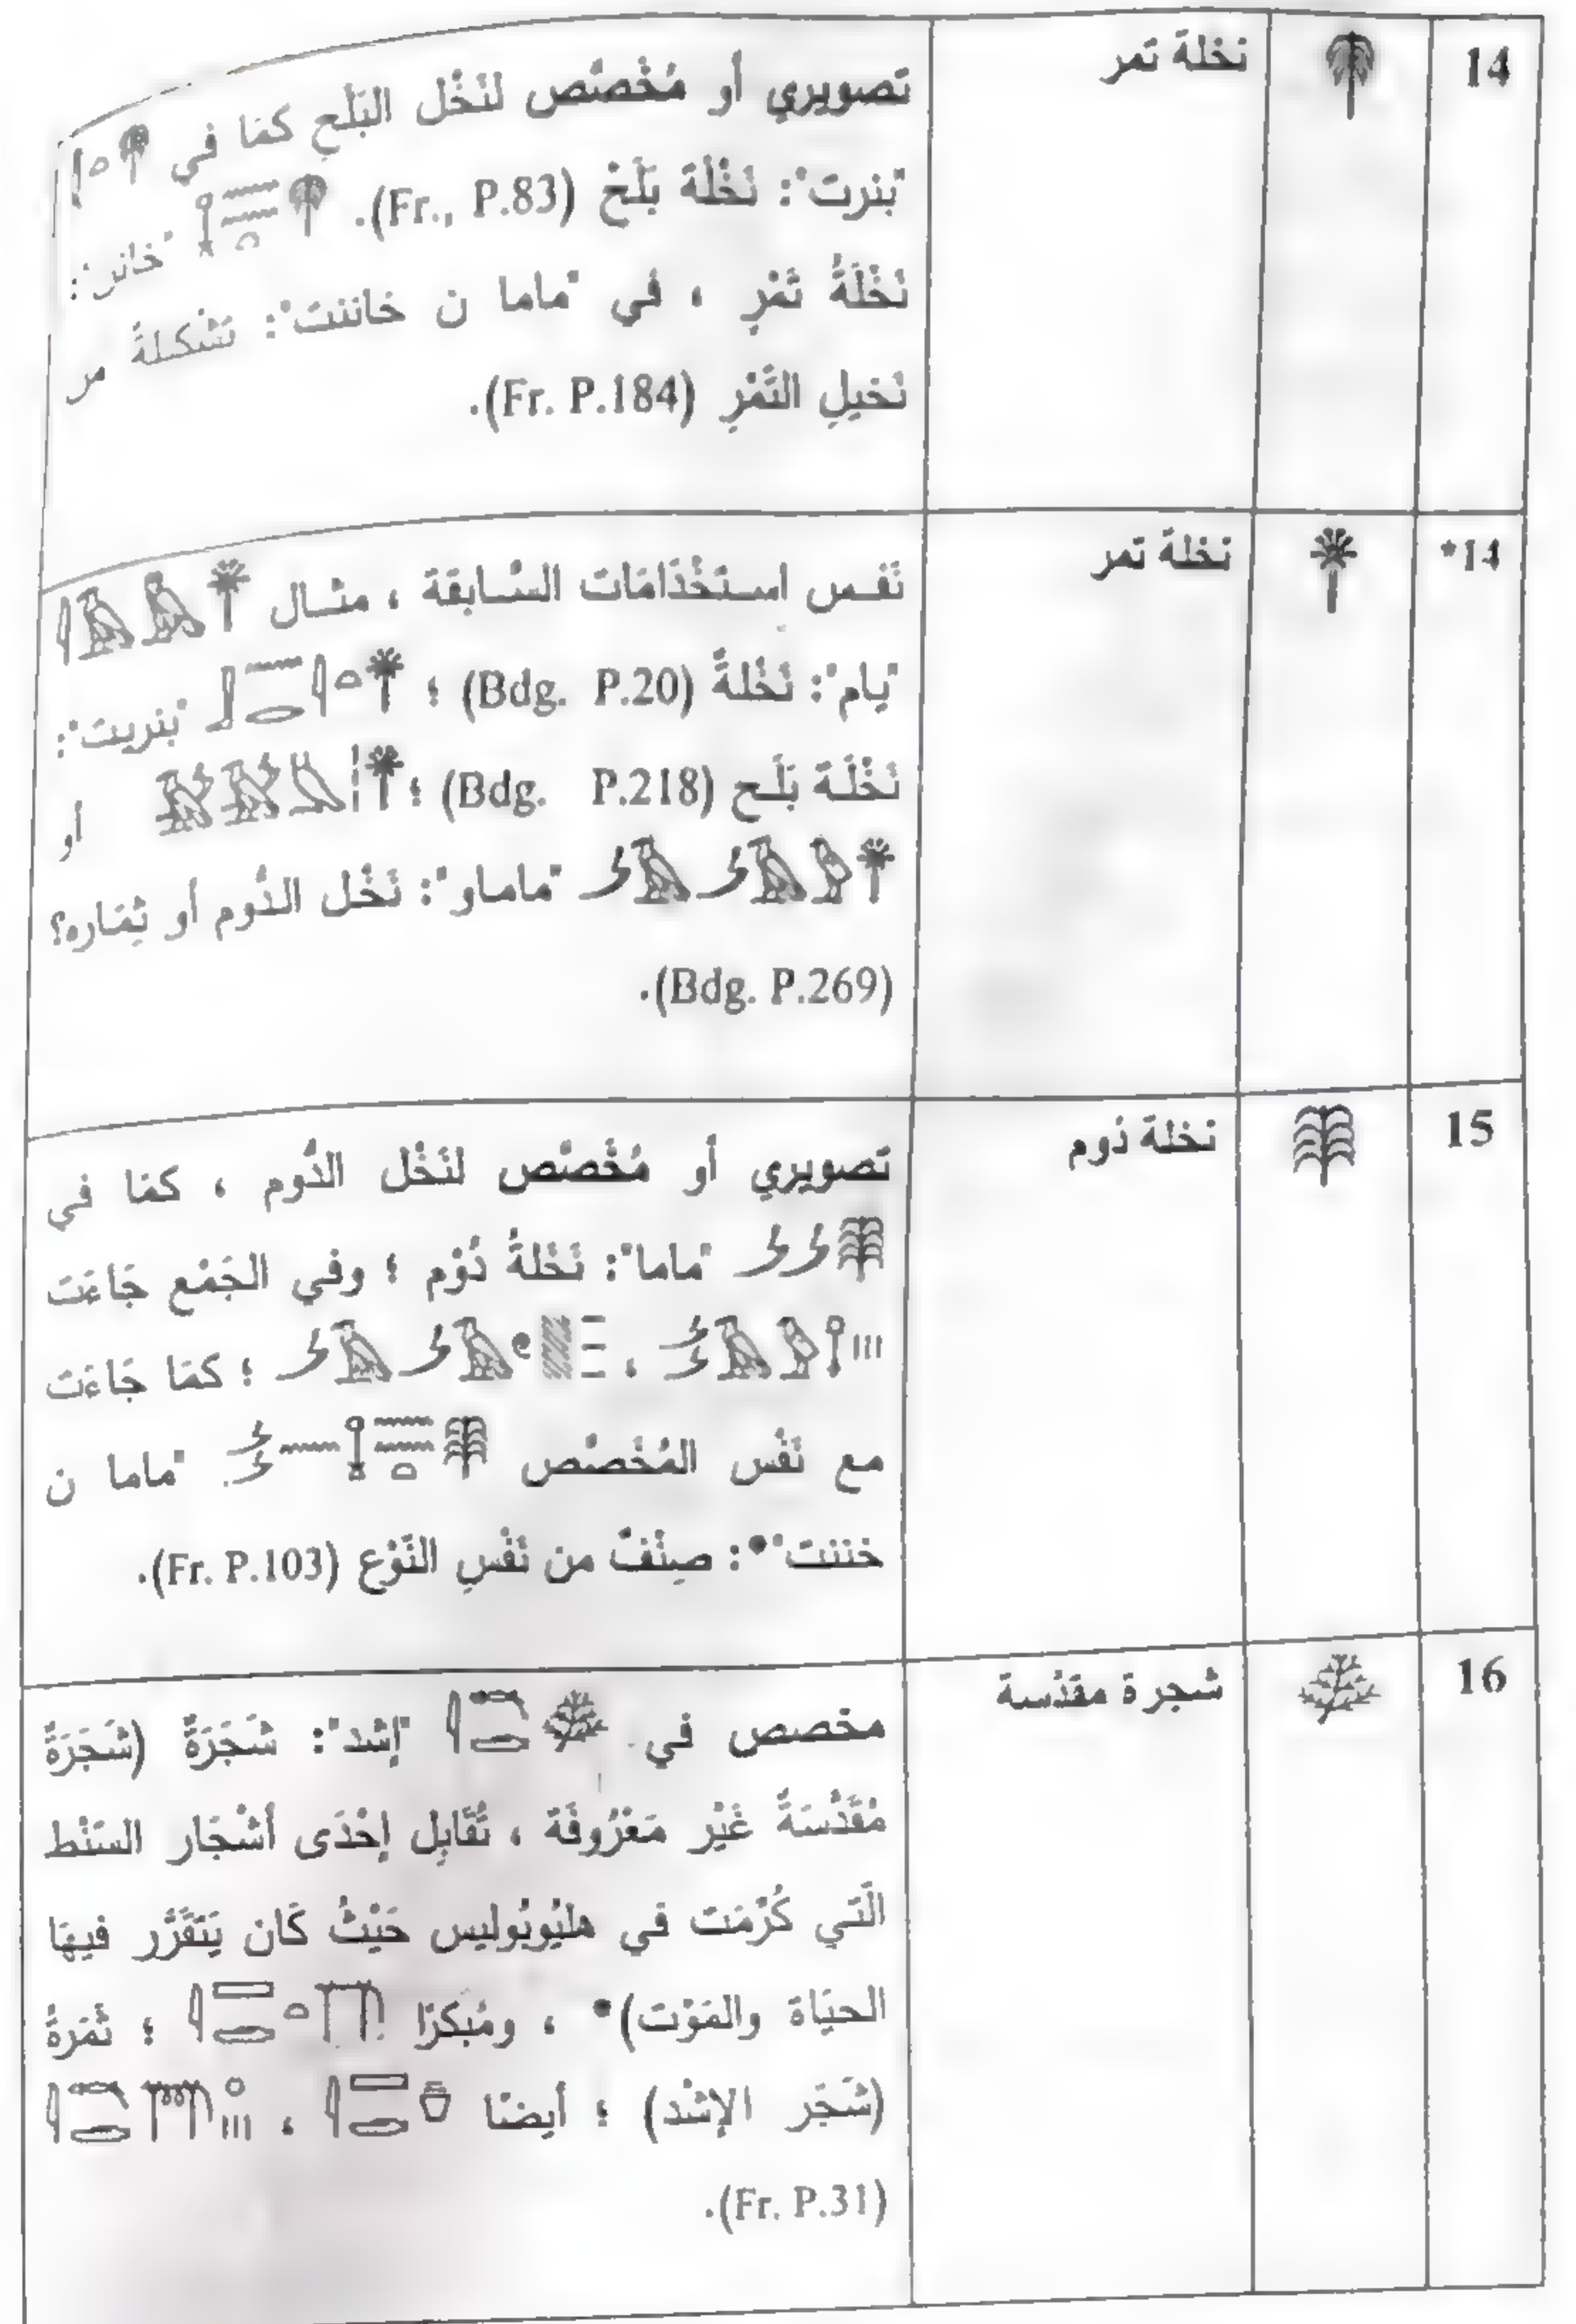 14 نخلة تمر
تصويري أو مُخْصَّص لنَخْل البَلَحِ كمَا في
"بنرت": نَخْلَة بَلَحْ (Fr., P.83).
نَخْلَةُ تَمْرٍ ، في "ماما ن خاننت": تَشْكيلةً
نَخيلِ التَّمْرِ (Fr. P.184).
14* نخلة تمر
نَفس اِستَخْدَامَات السَّابقَة ، مثال
"يام": نَخْلةً (Bdg. P.20) ؛ "بنريت":
نَخْلَة بَلَح (Bdg. P.218) ؛ أو
"ماماو": نَخْل الدَّوم أو ثِمَاره؟
(Bdg. P.269).
15 نخلة دَوم
تَصويري أو مُخْصَّص لنَخْل الدَّوم ، كمَا في
"ماما": نَخْلةُ دَوْم ؛ وفي الجَمْع جَاءَت
، ؛ كمَا جَاءَت
مع نَفْس المُخْصَّص "ماما ن
خننت"*: صِنْفٌ من نَفْسِ النَّوْع (Fr. P.103).
16 شجرة مقدَّسة
مخصص في "إشد": شَجَرَةً (شَجَرَةً
مُقَدَّسَةً غَيْر مَعْرُوفَة ، تُقَابِل إحْدَى أشْجَار السَنْط
الَّتي كُرِّمَت في هليُوبُوليس حَيْثُ كَان يَتَقَرَّر فيهَا
الحيَاة والمَوْت)* ، ومُبكرًا ؛ ثَمَرةً
(شَجَر الإشْد) ؛ أيضًا ،
(Fr. P.31).